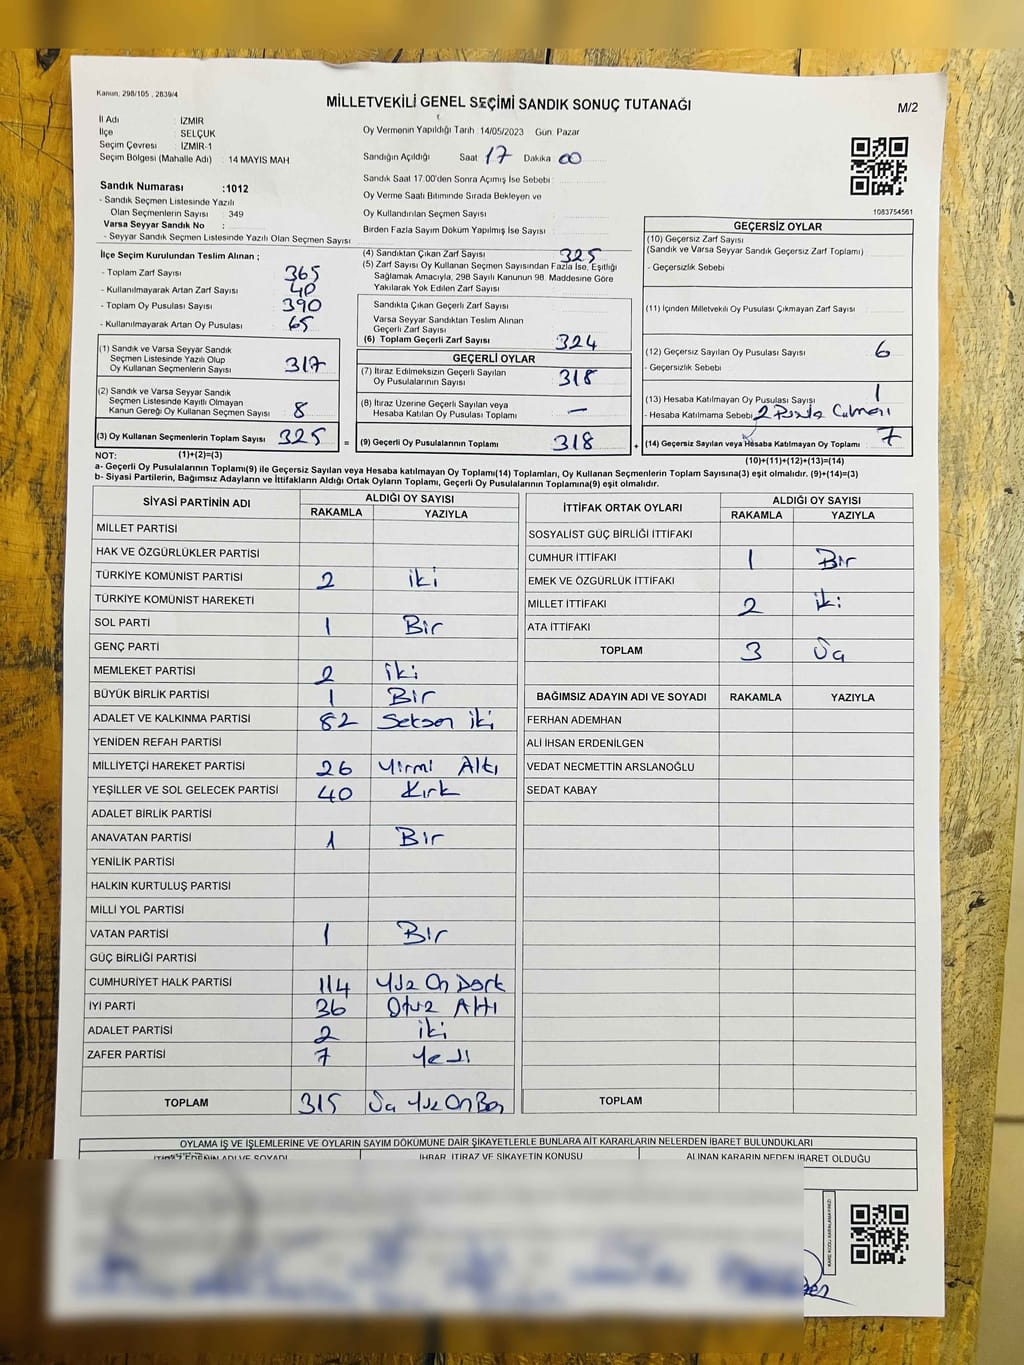 Kanun; 298/105 , 2839/4
MİLLETVEKİLİ GENEL SEÇİMİ SANDIK SONUÇ TUTANAĞI
M/2
İl Adı : İZMİR
İlçe : SELÇUK
Seçim Çevresi : İZMİR-1
Seçim Bölgesi (Mahalle Adı) : 14 MAYIS MAH
Oy Vermenin Yapıldığı Tarih :14/05/2023 Gün: Pazar
Sandığın Açıldığı Saat 17 Dakika 00
Sandık Saat 17.00'den Sonra Açımış İse Sebebi :
Oy Verme Saati Bitiminde Sırada Bekleyen ve
Oy Kullandırılan Seçmen Sayısı
Birden Fazla Sayım Döküm Yapılmış İse Sayısı :
1083754561
Sandık Numarası :1012
- Sandık Seçmen Listesinde Yazılı
Olan Seçmenlerin Sayısı : 349
Varsa Seyyar Sandık No :
- Seyyar Sandık Seçmen Listesinde Yazılı Olan Seçmen Sayısı
İlçe Seçim Kurulundan Teslim Alınan ;
- Toplam Zarf Sayısı 365
- Kullanılmayarak Artan Zarf Sayısı 40
- Toplam Oy Pusulası Sayısı 390
- Kullanılmayarak Artan Oy Pusulası 65
(1) Sandık ve Varsa Seyyar Sandık
Seçmen Listesinde Yazılı Olup
Oy Kullanan Seçmenlerin Sayısı 317
(2) Sandık ve Varsa Seyyar Sandık
Seçmen Listesinde Kayıtlı Olmayan
Kanun Gereği Oy Kullanan Seçmen Sayısı 8
(3) Oy Kullanan Seçmenlerin Toplam Sayısı 325 =
(1)+(2)=(3)
(4) Sandıktan Çıkan Zarf Sayısı 325
(5) Zarf Sayısı Oy Kullanan Seçmen Sayısından Fazla İse, Eşitliği
Sağlamak Amacıyla, 298 Sayılı Kanunun 98. Maddesine Göre
Yakılarak Yok Edilen Zarf Sayısı
Sandıkta Çıkan Geçerli Zarf Sayısı
Varsa Seyyar Sandıktan Teslim Alınan
Geçerli Zarf Sayısı
(6) Toplam Geçerli Zarf Sayısı 324
GEÇERLİ OYLAR
(7) İtiraz Edilmeksizin Geçerli Sayılan
Oy Pusulalarının Sayısı 318
(8) İtiraz Üzerine Geçerli Sayılan veya
Hesaba Katılan Oy Pusulası Toplamı —
(9) Geçerli Oy Pusulalarının Toplamı 318 +
GEÇERSİZ OYLAR
(10) Geçersiz Zarf Sayısı
(Sandık ve Varsa Seyyar Sandık Geçersiz Zarf Toplamı)
- Geçersizlik Sebebi
(11) İçinden Milletvekili Oy Pusulası Çıkmayan Zarf Sayısı
(12) Geçersiz Sayılan Oy Pusulası Sayısı 6
- Geçersizlik Sebebi
(13) Hesaba Katılmayan Oy Pusulası Sayısı 1
- Hesaba Katılmama Sebebi
(14) Geçersiz Sayılan veya Hesaba Katılmayan Oy Toplamı 7
(10)+(11)+(12)+(13)=(14)
NOT:
a- Geçerli Oy Pusulalarının Toplamı(9) ile Geçersiz Sayılan veya Hesaba katılmayan Oy Toplamı(14) Toplamları, Oy Kullanan Seçmenlerin Toplam Sayısına(3) eşit olmalıdır. (9)+(14)=(3)
b- Siyasi Partilerin, Bağımsız Adayların ve İttifakların Aldığı Ortak Oyların Toplamı, Geçerli Oy Pusulalarının Toplamına(9) eşit olmalıdır.
SİYASİ PARTİNİN ADI ALDIĞI OY SAYISI
RAKAMLA YAZIYLA
MİLLET PARTİSİ
HAK VE ÖZGÜRLÜKLER PARTİSİ
TÜRKİYE KOMÜNİST PARTİSİ 2 iki
TÜRKİYE KOMÜNİST HAREKETİ
SOL PARTİ 1 Bir
GENÇ PARTİ
MEMLEKET PARTİSİ 2 iki
BÜYÜK BİRLİK PARTİSİ 1 Bir
ADALET VE KALKINMA PARTİSİ 82 Seksen iki
YENİDEN REFAH PARTİSİ
MİLLİYETÇİ HAREKET PARTİSİ 26 Yirmi Altı
YEŞİLLER VE SOL GELECEK PARTİSİ 40 Kırk
ADALET BİRLİK PARTİSİ
ANAVATAN PARTİSİ 1 Bir
YENİLİK PARTİSİ
HALKIN KURTULUŞ PARTİSİ
MİLLİ YOL PARTİSİ
VATAN PARTİSİ 1 Bir
GÜÇ BİRLİĞİ PARTİSİ
CUMHURİYET HALK PARTİSİ 114 Yüz On Dört
İYİ PARTİ 36 Otuz Altı
ADALET PARTİSİ 2 iki
ZAFER PARTİSİ 7 Yedi
TOPLAM 315 Üç Yüz On Beş
İTTİFAK ORTAK OYLARI ALDIĞI OY SAYISI
RAKAMLA YAZIYLA
SOSYALİST GÜÇ BİRLİĞİ İTTİFAKI
CUMHUR İTTİFAKI 1 Bir
EMEK VE ÖZGÜRLÜK İTTİFAKI
MİLLET İTTİFAKI 2 iki
ATA İTTİFAKI
TOPLAM 3 Üç
BAĞIMSIZ ADAYIN ADI VE SOYADI RAKAMLA YAZIYLA
FERHAN ADEMHAN
ALİ İHSAN ERDENİLGEN
VEDAT NECMETTİN ARSLANOĞLU
SEDAT KABAY
TOPLAM
OYLAMA İŞ VE İŞLEMLERİNE VE OYLARIN SAYIM DÖKÜMÜNE DAİR ŞİKAYETLERLE BUNLARA AİT KARARLARIN NELERDEN İBARET BULUNDUKLARI
İTİRAZ EDENİN ADI VE SOYADI İHBAR, İTİRAZ VE ŞİKAYETİN KONUSU ALINAN KARARIN NEDEN İBARET OLDUĞU